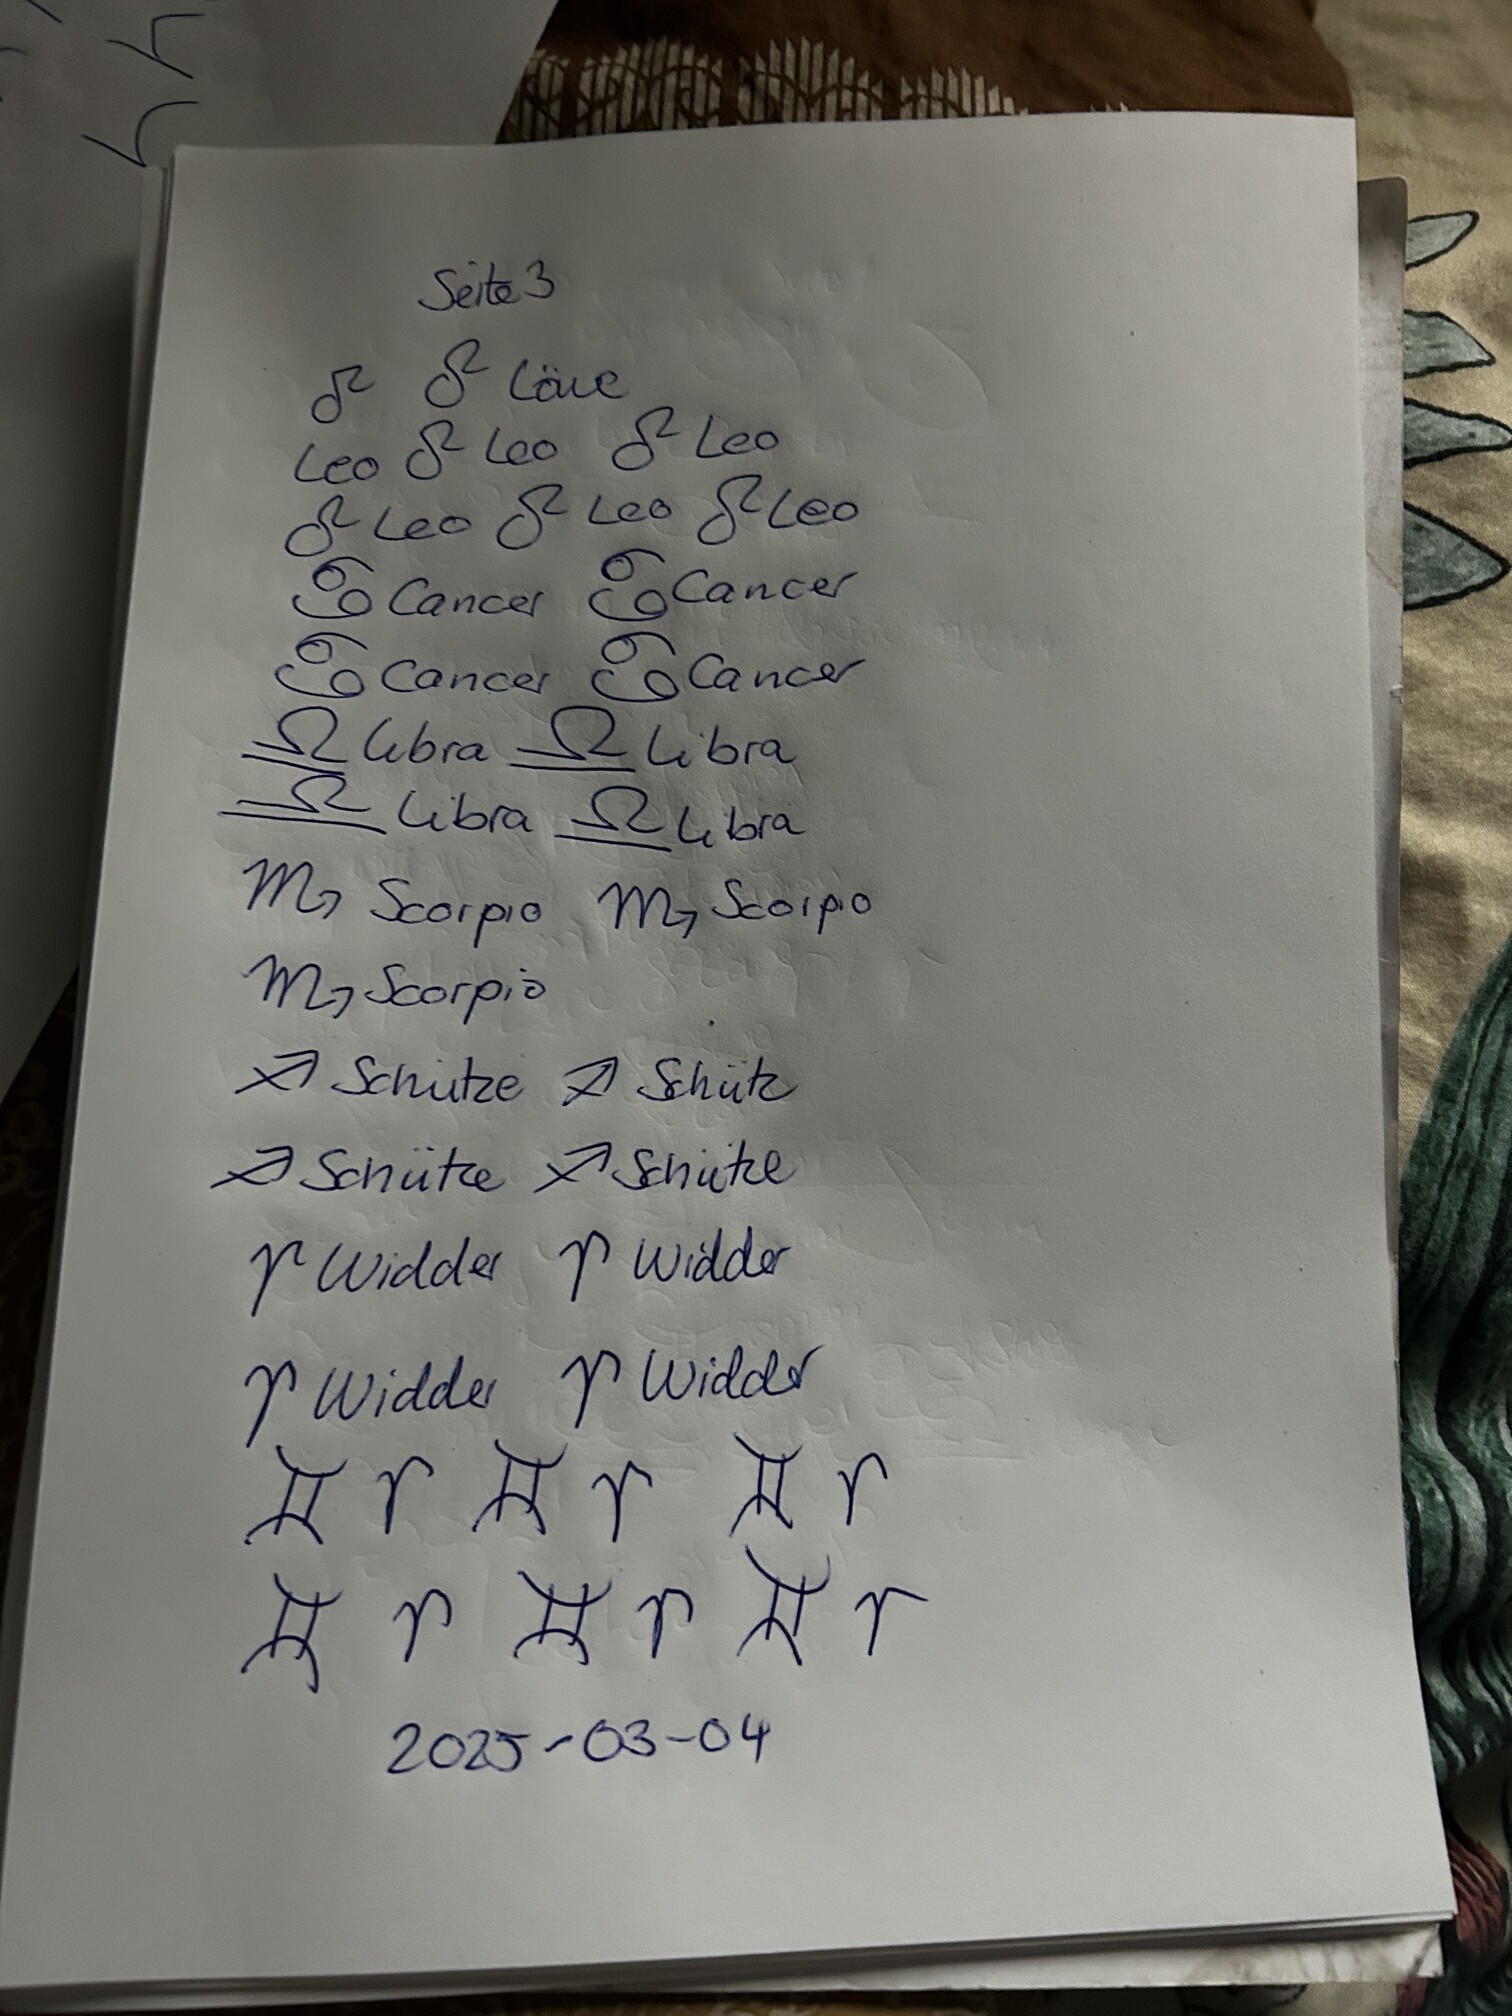 Seite 3
♌ ♌ Löwe
Leo ♌ Leo ♌ Leo
♌ Leo ♌ Leo ♌ Leo
♋ Cancer ♋ Cancer
♋ Cancer ♋ Cancer
♎ Libra ♎ Libra
♎ Libra ♎ Libra
♏ Scorpio ♏ Scorpio
♏ Scorpio
♐ Schütze ♐ Schütz
♐ Schütze ♐ Schütze
♈ Widder ♈ Widder
♈ Widder ♈ Widder
♊ ♈ ♊ ♈ ♊ ♈
♊ ♈ ♊ ♈ ♊ ♈
2025-03-04